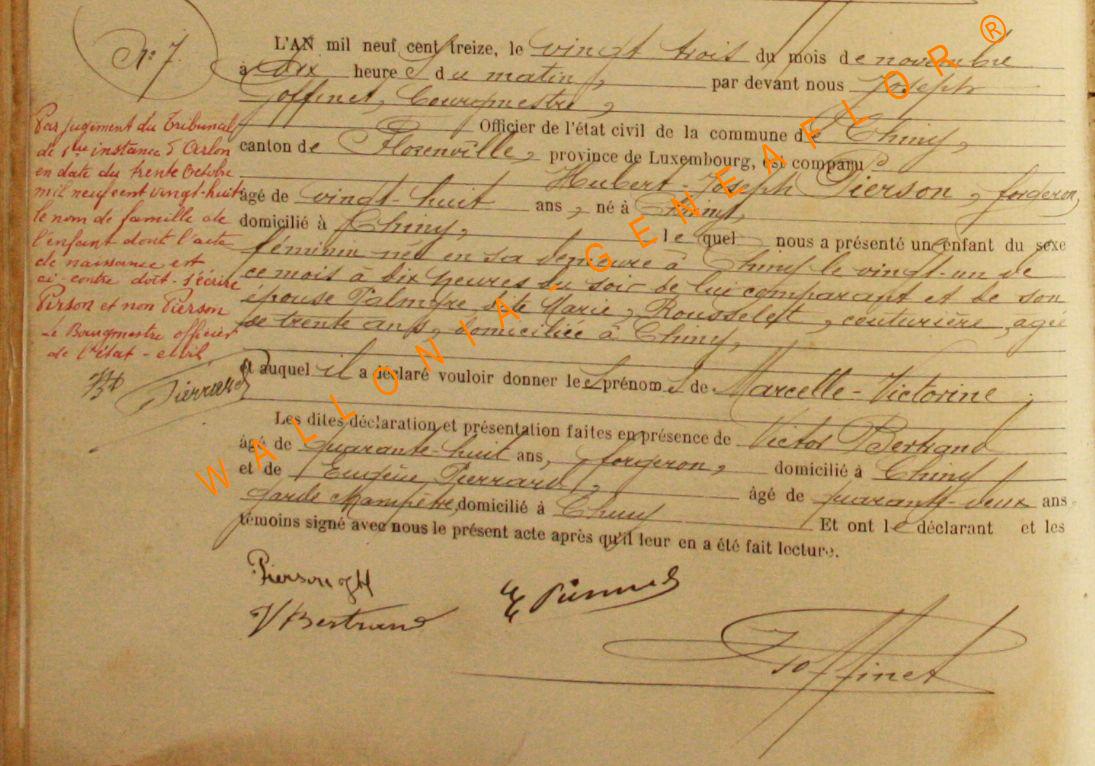 N° 7
L'AN mil neuf cent treize, le vingt trois du mois de novembre
à dix heures du matin, par devant nous Joseph
Goffinet, Bourgmestre,
Officier de l'état civil de la commune de Chiny,
canton de Florenville, province de Luxembourg, est comparu
Hubert-Joseph Pierson, forgeron,
âgé de vingt-huit ans, né à Chiny,
domicilié à Chiny, le quel nous a présenté un enfant du sexe
féminin né en sa demeure à Chiny le vingt-un de
ce mois à dix heures du soir de lui comparant et de son
épouse Palmyre, dite Marie, Rousselet, couturière, agée
de trente ans, domiciliée à Chiny,
Et auquel il a déclaré vouloir donner les prénoms de Marcelle-Victorine.
Les dites déclaration et présentation faites en présence de Victor Bertrand
âgé de quarante-huit ans, forgeron, domicilié à Chiny
et de Eugène Pierrard, âgé de quarante-deux ans
garde champêtre, domicilié à Chiny Et ont le déclarant et les
témoins signé avec nous le présent acte après qu'il leur en a été fait lecture.
Par jugement du Tribunal
de 1re instance d'Arlon
en date du trente Octobre
mil neuf cent vingt-huit
le nom de famille de
l'enfant dont l'acte
de naissance est
ci-contre doit s'écrire
Pirson et non Pierson
Le Bourgmestre officier
de l'état-civil
Pierrard
Pierson
V Bertrand
E Pierrard
Goffinet
WALLONIA - GENEAFLOR ®